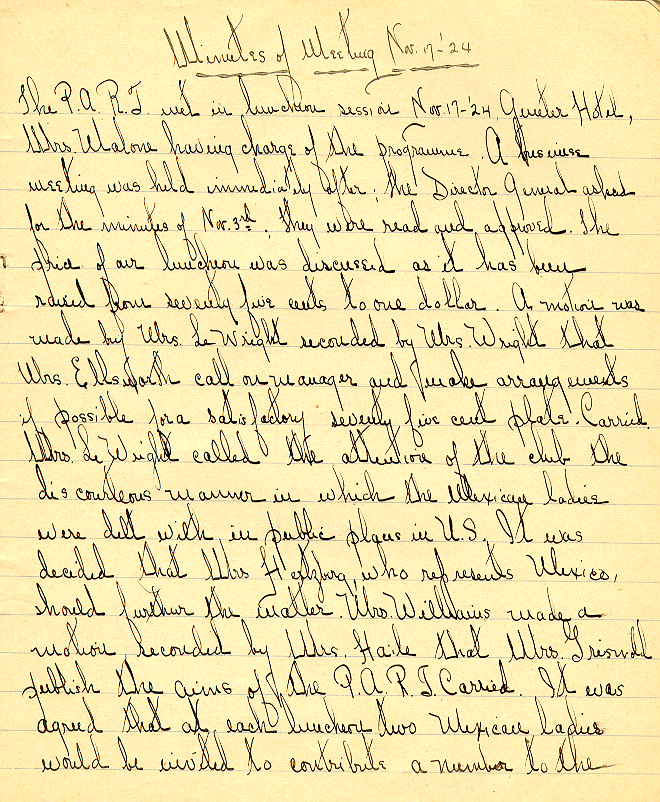 Minutes of Meeting Nov. 17-'24
The P.A.R.T. met in luncheon session Nov. 17-'24, Gunter Hotel,
Mrs. Malone having charge of the programme. A business
meeting was held immediatly after; the Director General asked
for the minutes of Nov. 3rd; They were read and approved. The
price of our luncheon was discussed as it has been
raised from seventy five cents to one dollar. A motion was
made by Mrs. Le Wright seconded by Mrs. Wright that
Mrs. Ellsworth call on manager and make arrangements
if possible for a satisfactory seventy five cent plate. Carried.
Mrs. Le Wright called the attention of the club the
discourteous manner in which the Mexican ladies
were delt with in public places in U.S. It was
decided that Mrs Hertzberg, who represents Mexico,
should further the matter. Mrs. Williams made a
motion seconded by Mrs. Haile that Mrs. Griswold
publish the aims of the P.A.R.T. Carried. It was
agreed that at each luncheon two Mexican ladies
would be invited to contribute a number to the